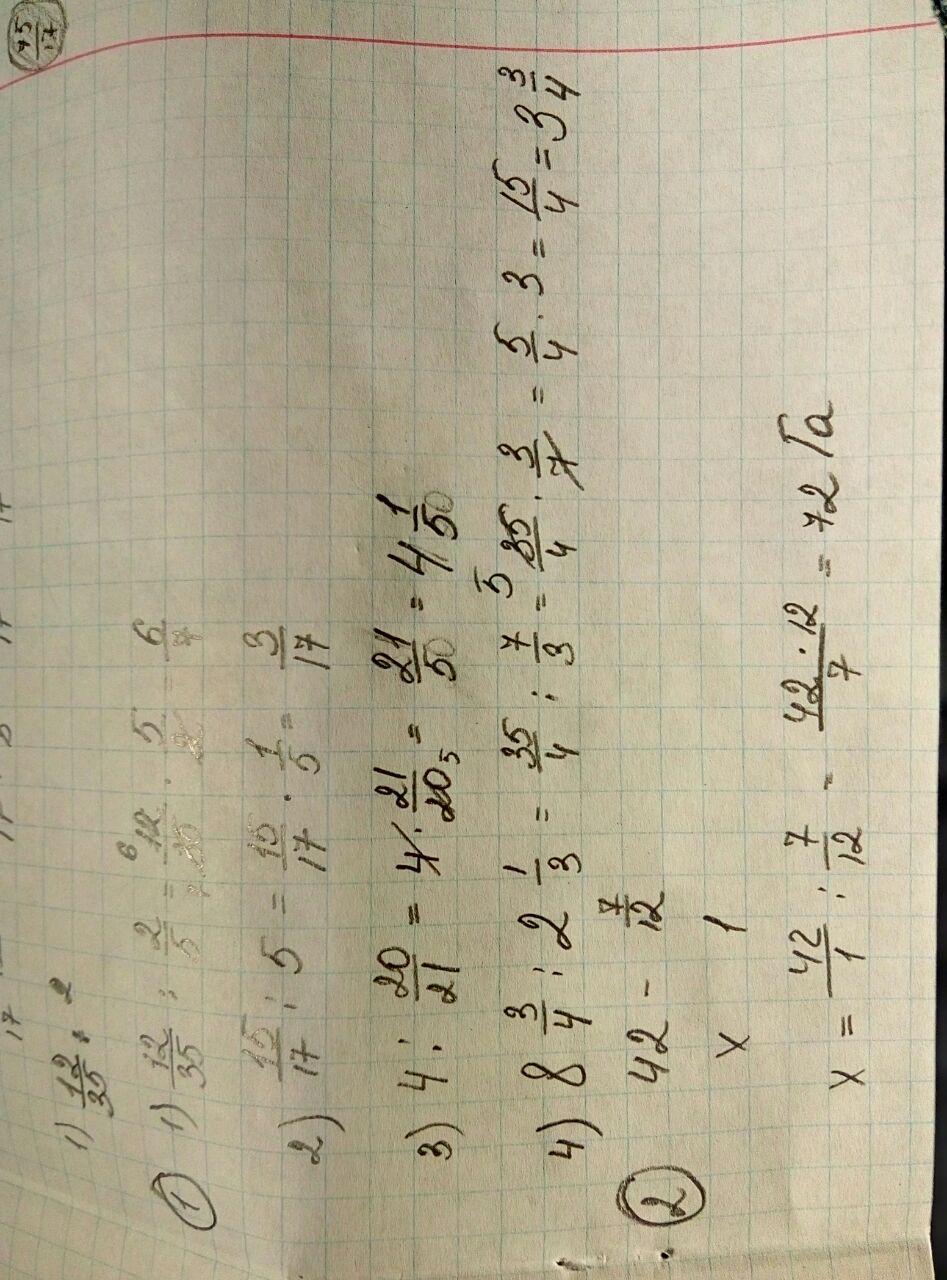 45/17
1) 12/35 : 2
① 1) 12/35 : 2/5 = 12/35 · 5/2 = 6/7
2) 15/17 : 5 = 15/17 · 1/5 = 3/17
3) 4 : 20/21 = 4 · 21/20 5 = 21/5 = 4 1/5
4) 8 3/4 : 2 1/3 = 35/4 : 7/3 = 5 35/4 · 3/7 = 5/4 · 3 = 15/4 = 3 3/4
② 42 - 7/12
x 1
x = 42/1 : 7/12 - 42 · 12/7 = 72 Га